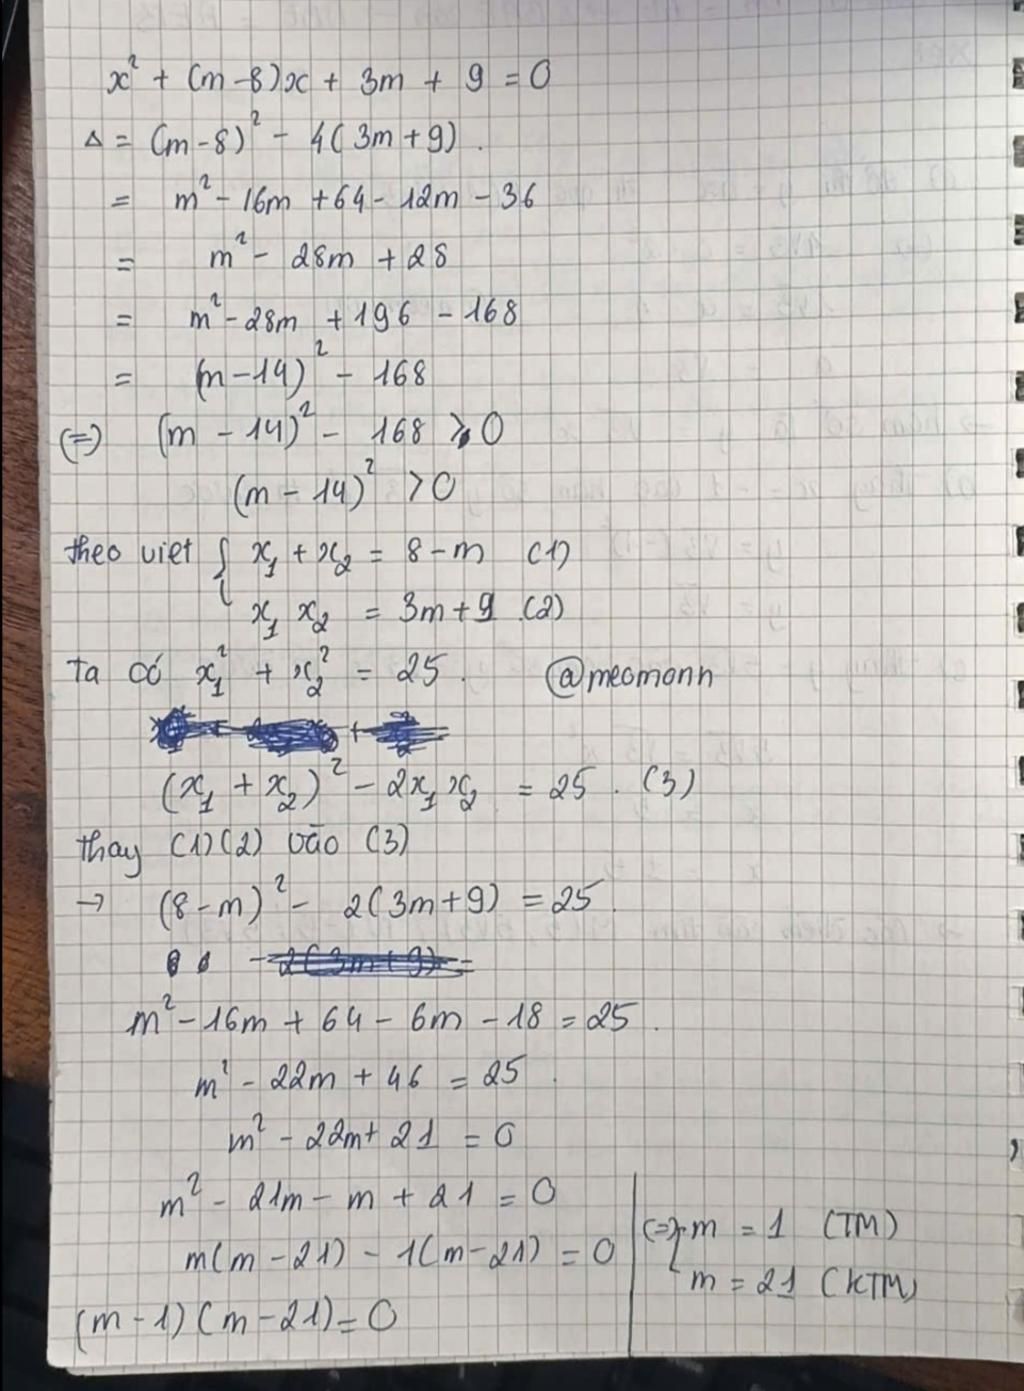 x² + (m-8)x + 3m + 9 = 0
Δ = (m-8)² - 4(3m+9).
= m² - 16m + 64 - 12m - 36
= m² - 28m + 28
= m² - 28m + 196 - 168
= (m-14)² - 168
(=) (m - 14)² - 168 > 0
(m - 14)² > 0
theo viet { x₁ + x₂ = 8 - m (1)
x₁ x₂ = 3m + 9 (2)
Ta có x₁² + x₂² = 25. @meomonn
(x₁ + x₂)² - 2x₁x₂ = 25. (3)
thay (1)(2) vào (3)
→ (8-m)² - 2(3m+9) = 25.
m² - 16m + 64 - 6m - 18 = 25.
m² - 22m + 46 = 25.
m² - 22m + 21 = 0
m² - 21m - m + 21 = 0
m(m-21) - 1(m-21) = 0
(m-1)(m-21) = 0
(=) { m = 1 (TM)
m = 21 (KTM)